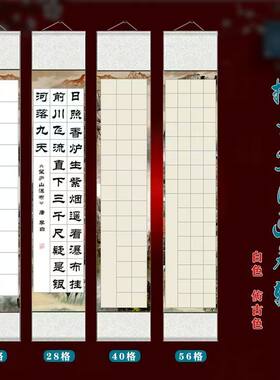 日照香炉生紫烟遥看瀑布挂
前川飞流直下三千尺疑是银
河落九天
《望庐山瀑布》唐 李白
白色
仿古色
格
28格
40格
56格